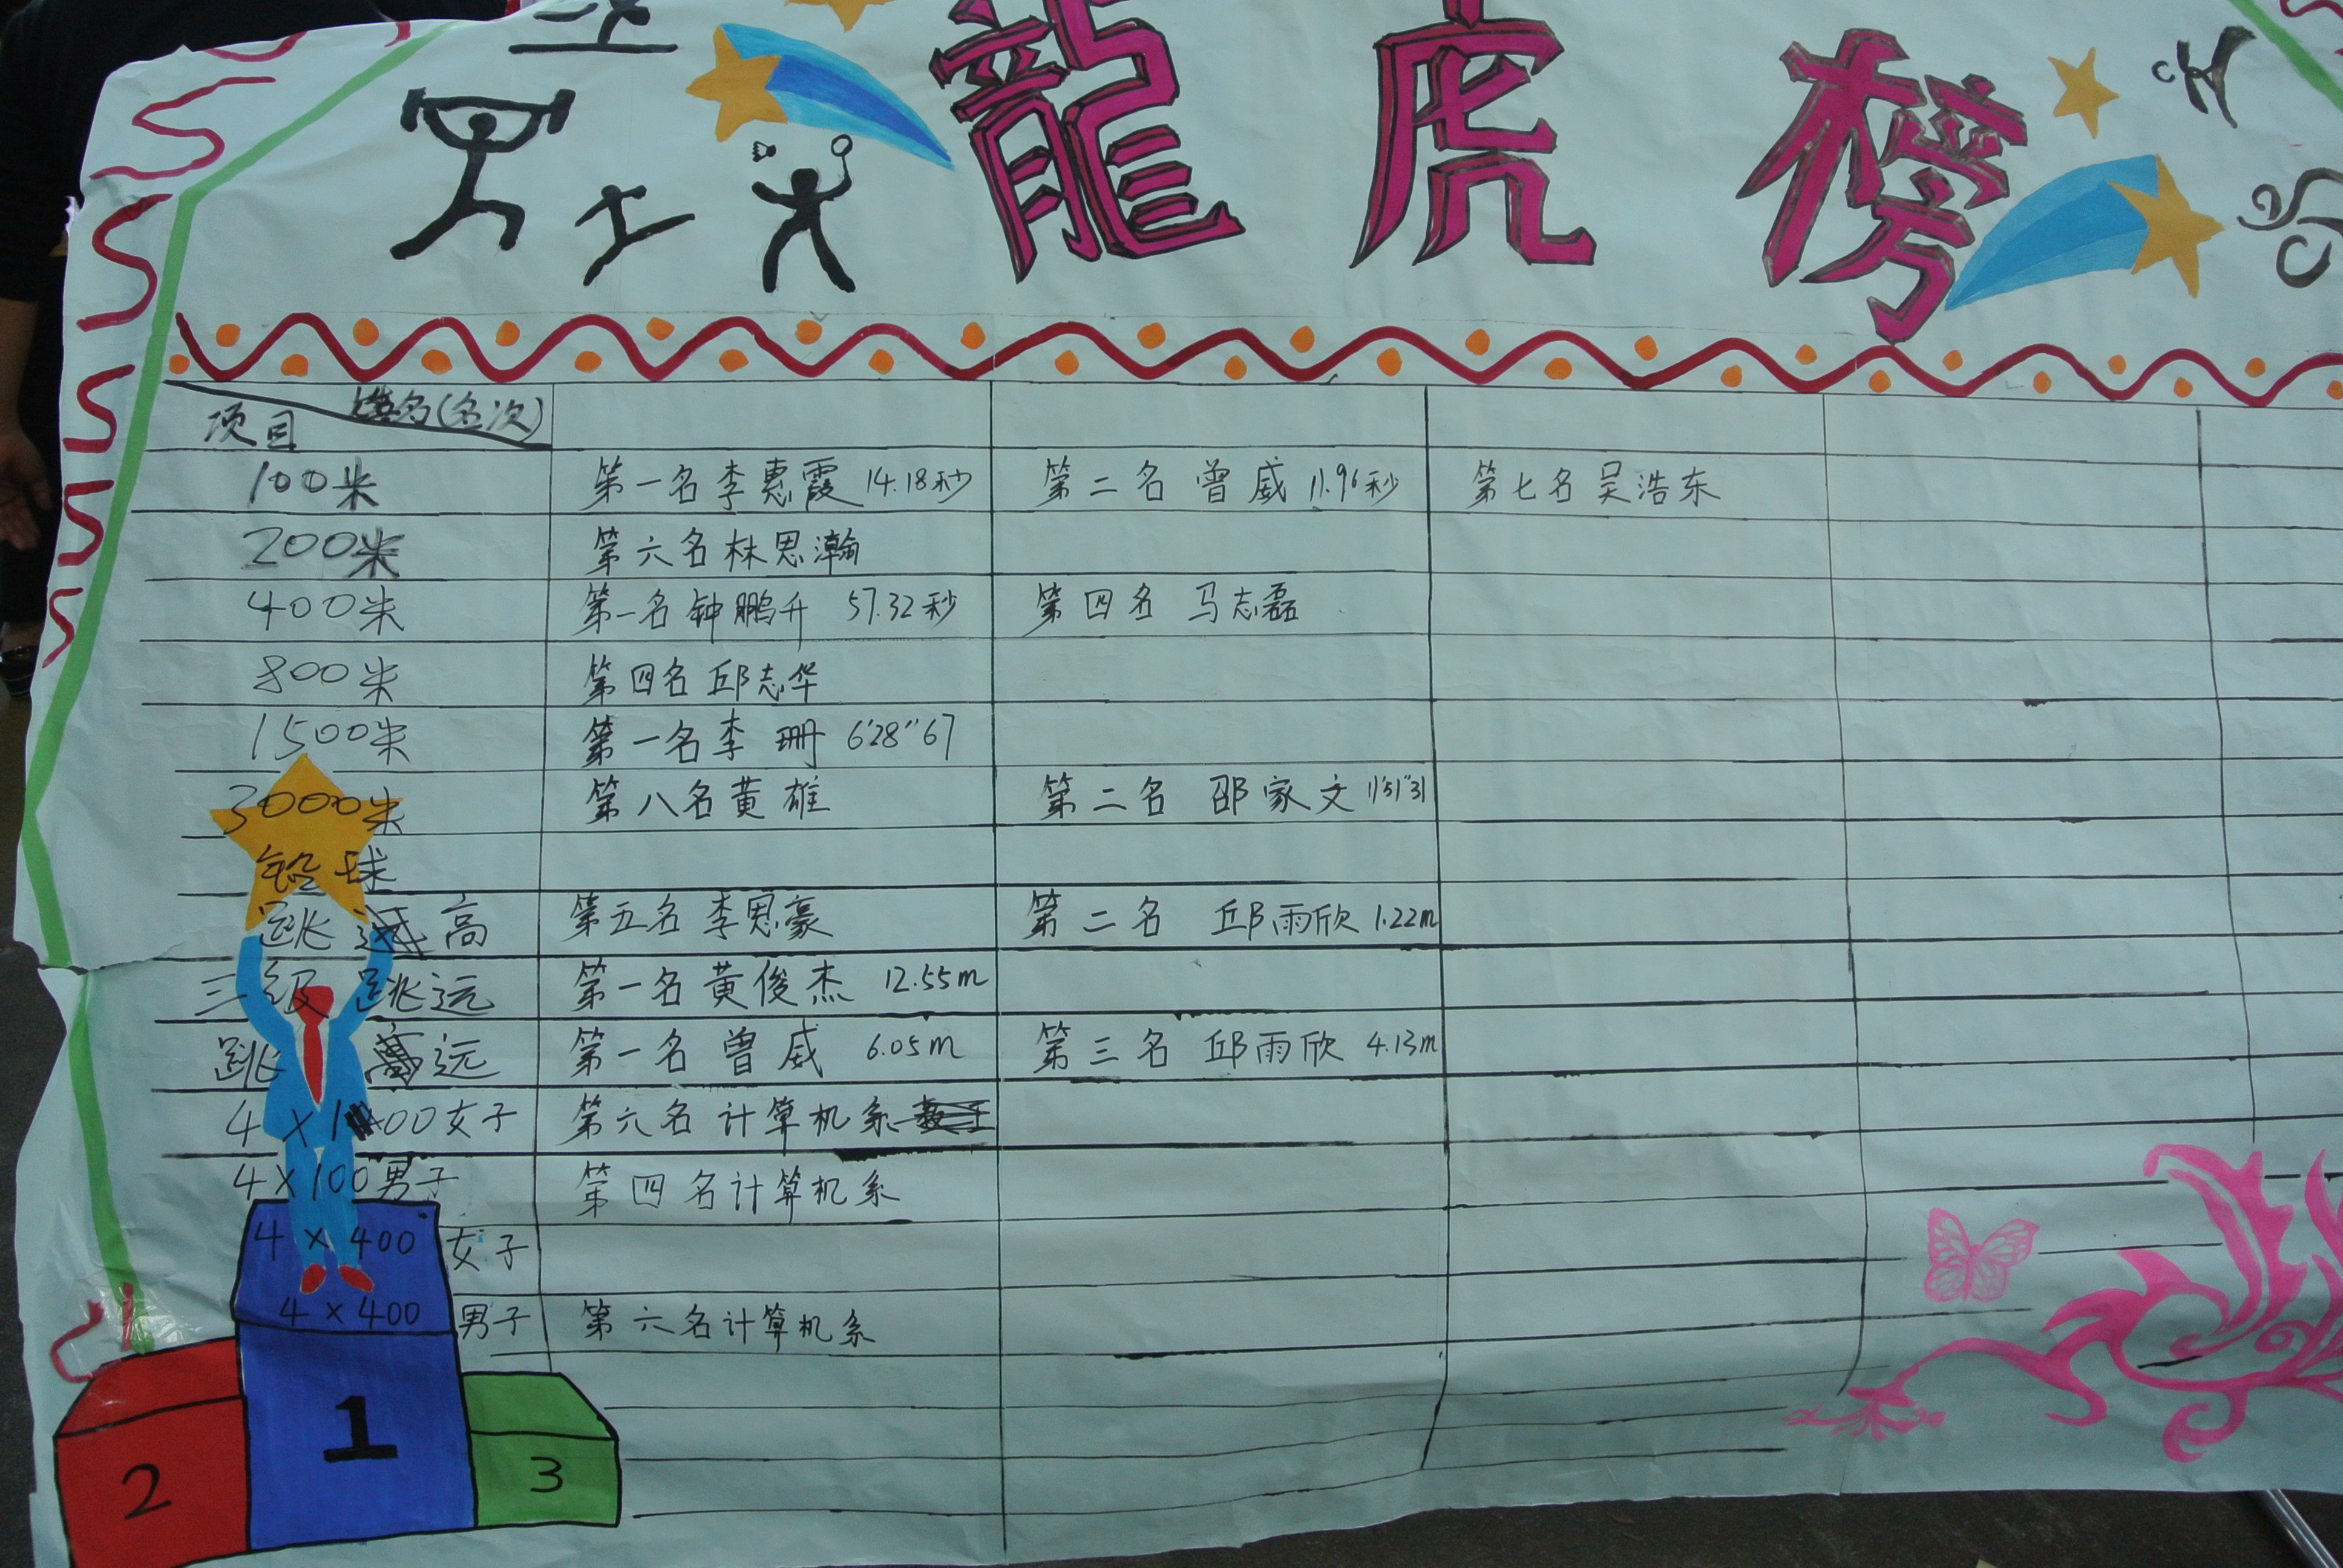 龍虎榜
项目 姓名(名次)
100米 第一名李惠霞 14.18秒 第二名 曾威 11.96秒 第七名吴浩东
200米 第六名林思瀚
400米 第一名钟鹏升 57.32秒 第四名 马志磊
800米 第四名邱志华
1500米 第一名李珊 6'28"67
3000米 第八名黄雄 第二名 邵家文 11'51"31
铅球
跳高 第五名李思豪 第二名 邱雨欣 1.22m
三级跳远 第一名黄俊杰 12.55m
跳远 第一名曾威 6.05m 第三名 邱雨欣 4.13m
4×100女子 第六名计算机系
4×100男子 第四名计算机系
4×400女子
4×400男子 第六名计算机系
1
2 3